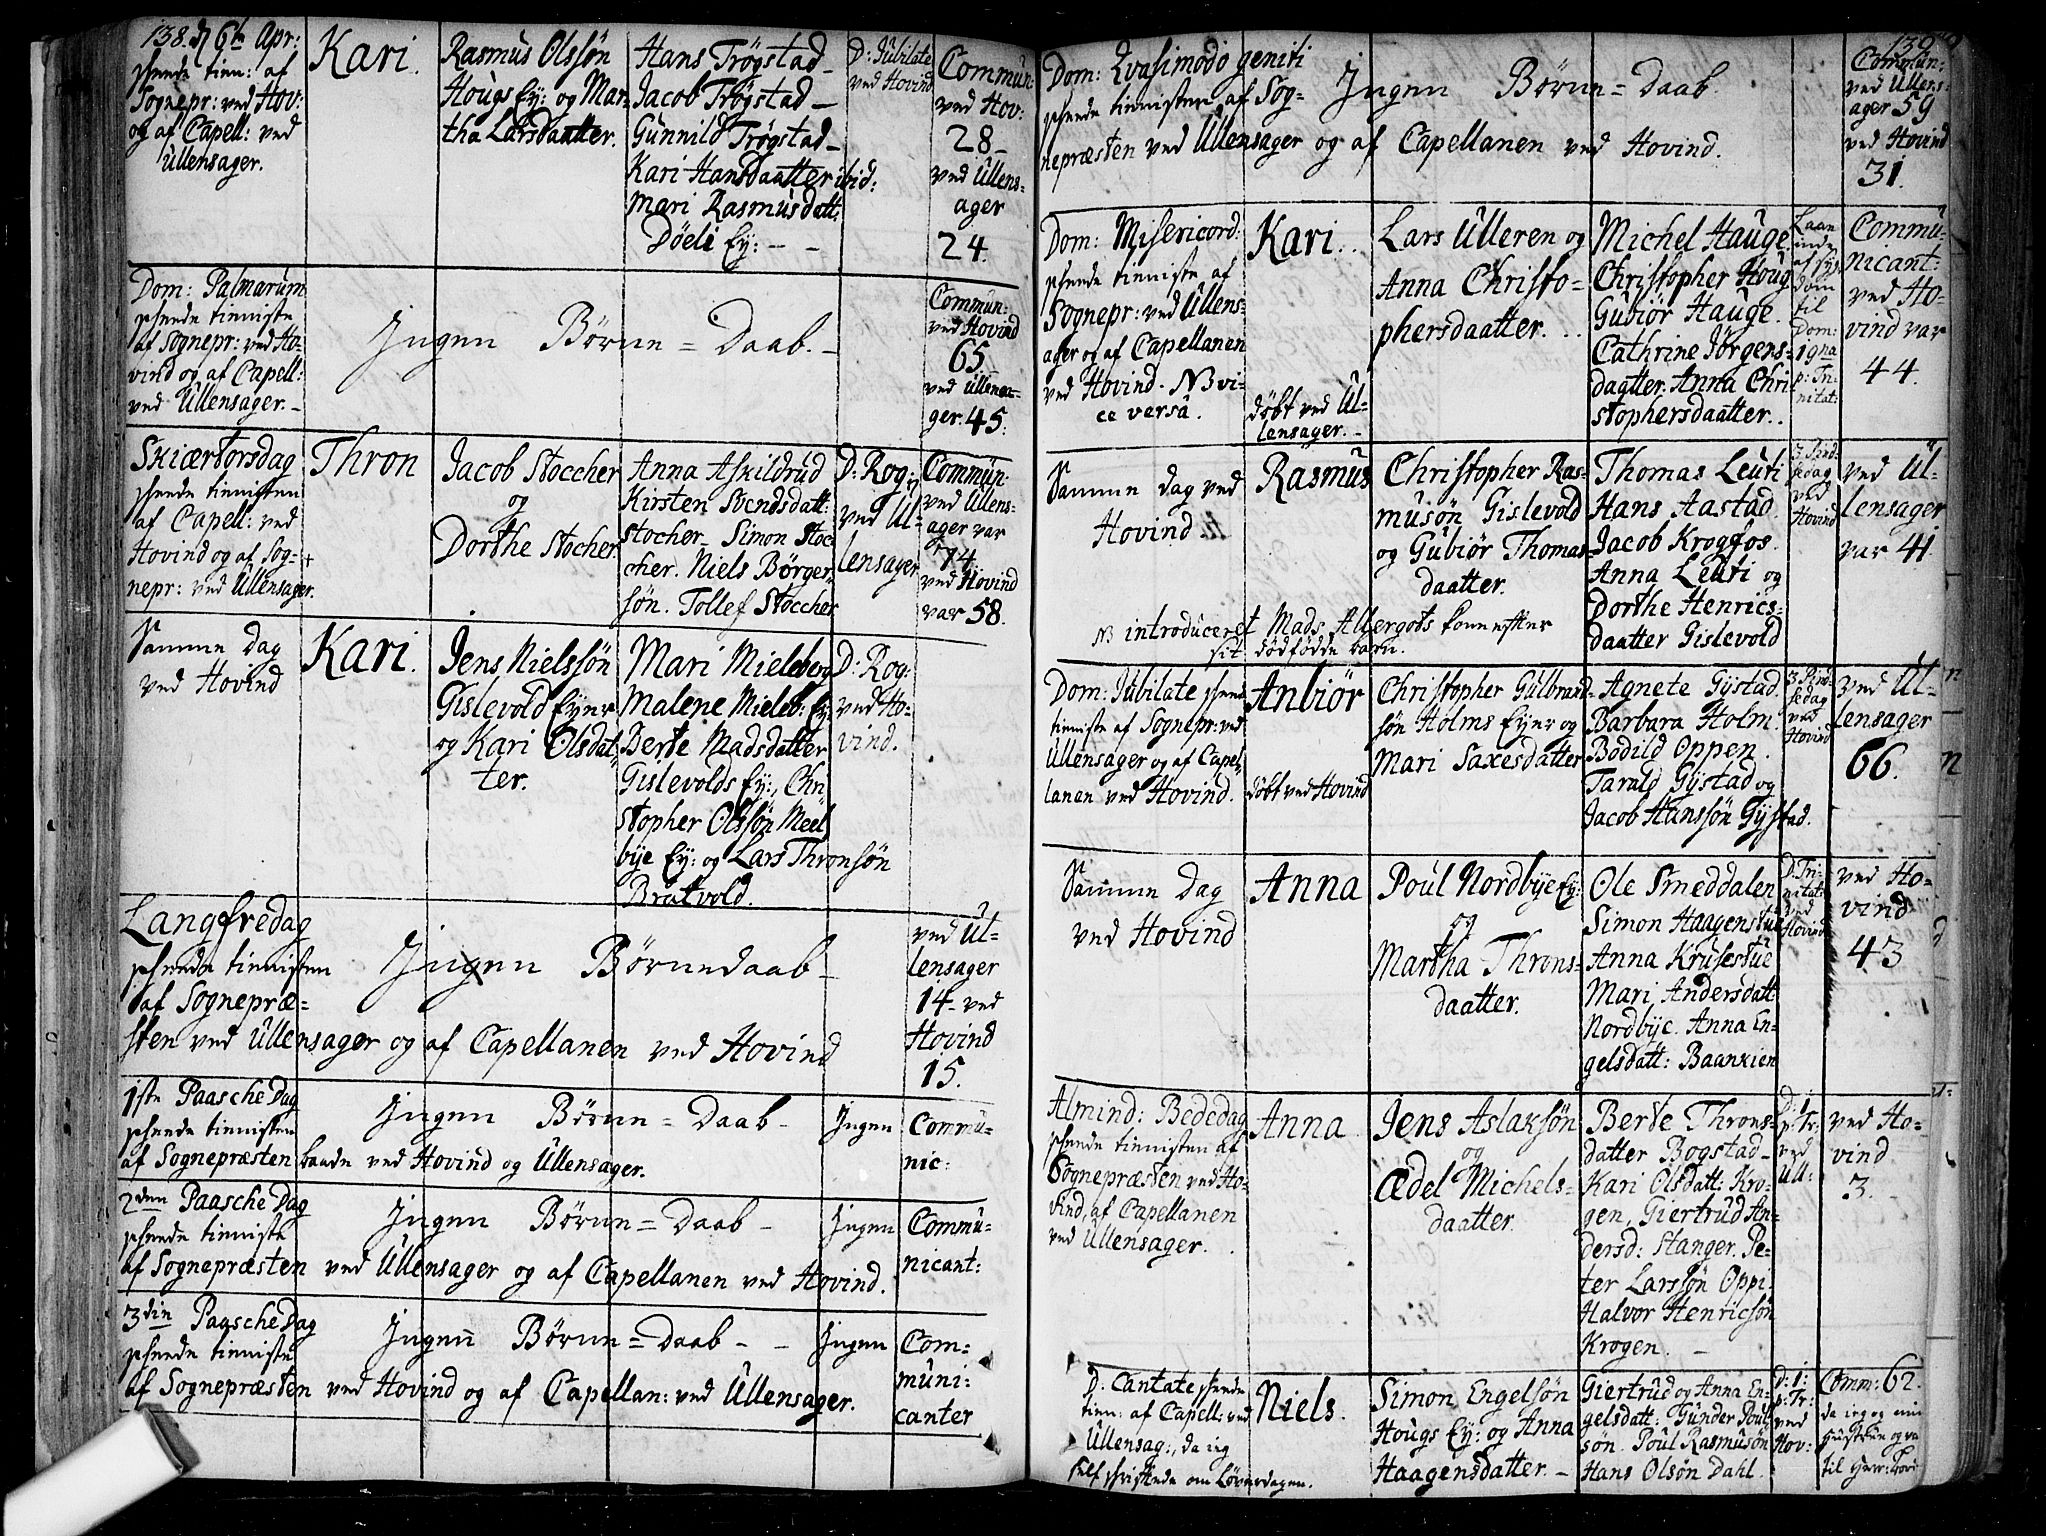 138. d 6te Apr:
skeede tien: af
Sognepr: ved Hov:
og af Capell: ved
Ullensager.
Kari.
Rasmus Olssøn
Hougs Ey: og Mar-
tha Larsdaatter.
Hans Trøgstad
Jacob Trøgstad –
Gunnild Trøgstad –
Kari Hansdaatter ibid:
Mari Rasmusdatt:
Døeli Ey: – –
D: Jubilate
ved Hovind
Commun:
ved Hov:
28 –
ved Ullens-
ager
24.
Dom: Palmarum
skeede tienniste
af Sognepr: ved Ho-
vind og af Capell:
ved Ullensager. –
Ingen Børne = Daab. –
Commun:
ved Hovind
65
ved Ullensa-
ger. 45.
Skiærtorsdag
skeede tiennisten
af Capell: ved
Hovind og af Sog-
nepr: ved Ullensager.
Thron
Jacob Stoccher
og
Dorthe Stocher
Anna Askildrud
Kirsten Svendsdatt:
Stocher – Simon Stoc-
cher. Niels Børger-
søn. Tollef Stoccher
D: Rog:
ved Ul-
lensager
Commun:
ved Ullens-
ager var
74.
ved Hovind
var 58.
Samme Dag
ved Hovind
Kari.
Jens Nielssøn
Gislevold Eyner
og Kari Olsdat-
ter.
Mari Mieleberg
Malene Mieleb: Ey:
Berte Madsdatter
Gislevolds Ey:, Chri-
stopher Olssøn Meel-
bye Ey: og Lars Thronsøn
Bratvold.
D: Rog:
ved Ho-
vind.
Langfredag
skeede tiennisten
af Sognepræ-
sten ved Ullensager og af Capellanen ved Hovind
Ingen Børnedaab –
ved Ul-
lensager
14 – ved
Hovind
15.
1ste Paasche Dag
skeede tiennisten
af Sognepræsten baade ved Hovind og Ullensager.
Ingen Børne = Daab –
Ingen
Commu-
nic:
2den Paasche Dag
skeede tienniste
af Sognepræsten ved Ullensager og af Capellanen ved Hovind.
Ingen Børne = Daab –
Ingen
Commu-
nicant:
3die Paasche Dag
skeede tienniste
af Sognepræsten ved Hovind og af Capellan: ved Ullensager.
Ingen Børne = Daab – –
Ingen
Com-
muni-
canter
139
Dom: Qvasimodo geniti
skeede tiennisten af Sog-
nepræsten ved Ullensager og af Capellanen ved Hovind.
Ingen Børne = Daab.
Commun:
ved Ullens-
ager 59
ved Hovind
31.
Dom: Misericord:
skeede tienniste af
Sognepr: ved Ullens-
ager og af Capellanen
ved Hovind. NB vi-
ce versa.
Kari.
døbt ved Ul-
lensager. –
Lars Ulleren og
Anna Christo-
phersdaatter. . .
Michel Hauge
Christopher Houg
Gubiør Hauge.
Cathrine Jørgens-
daatter. Anna Chri-
stophersdaatter..
til
Dom:
nitat:
Commu-
nicant:
ved Ho-
vind var
44.
Samme dag ved
Hovind
Rasmus
Christopher Ras-
musøn Gislevold
og Gubiør Thomas-
daatter.
Thomas Leuti
Hans Aastad
Jacob Krogfos.
Anna Leuti og
Dorthe Henrics-
daatter Gislevold
3 Pind-
sedag
ved
Hovind
ved Ul-
lensager
var 41.
NB introduceret Mads Allergots kone efter
sit dødfødde barn.
Dom: Jubilate skeede
tienniste af Sognepr: ved
Ullensager og af Capel-
lanen ved Hovind.
Anbiør
døbt ved Hovind
Christopher Gulbrand-
søn Holms Eyner og
Mari Saxesdatter
Agnete Gystad.
Barbara Holm.
Bodild Oppen.
Tarald Gystad og
Jacob Hanssøn Gystad.
3 Pind-
sedag
ved
Hovind
ved Ul-
lensager
66.
Samme Dag
ved Hovind
Anna
Poul Nordbye Ey:
og
Martha Throns-
daatter.
Ole Smeddalen
Simon Haagenstue
Anna Krusestue
Mari Andersdatt:
Nordbye. Anna En-
gelsdatt: Baankien
D: Tri-
nitat:
ved
Hovind
ved Ho-
vind
43
Almind: Bededag
skeede tiennisten af
Sognepræsten ved Ho-
vind, af Capellanen
ved Ullensager.
Anna
Jens Aslaksøn
og
Ædel Michels-
daatter.
Berte Throns-
datter Bogstad –
Kari Olsdatt: Kro-
gen, Giertrud An-
dersd: Stanger. Pe-
ter Larssøn Oppi
Halvor Henricsøn
Krogen. –
D: 1
p: Tr:
ved
Ull:
ved Ho-
vind
3.
D: Cantate skeede
tien: af Capell: ved
Ullensag:, da jeg
self skriftede om Løverdagen.
Niels.
Simon Engelsøn
Hougs Ey: og Anna
Haagensdatter. –
Giertrud og Anna En-
gelsdatt: Gunder Poul-
søn. Poul Rasmusøn
Hans Olsøn Dahl.
D: 1:
p: Tr:
ved
Hov:
Comm: 62.
da jeg og min